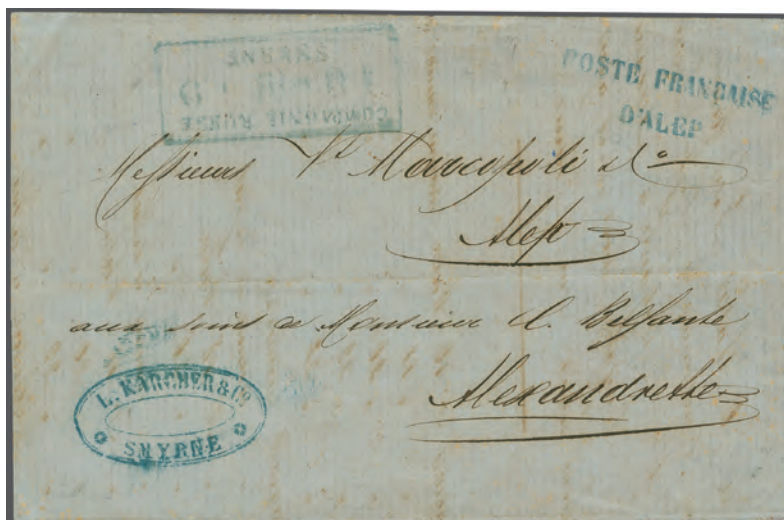 COMPAGNIE RUSSE
SMYRNE
POSTE FRANCAISE
D'ALEP
Messieurs Vt Marcopoli & Co
Alep
aux soins de Monsieur C. Belfante
Alexandrette
L. KARCHER & Co
SMYRNE